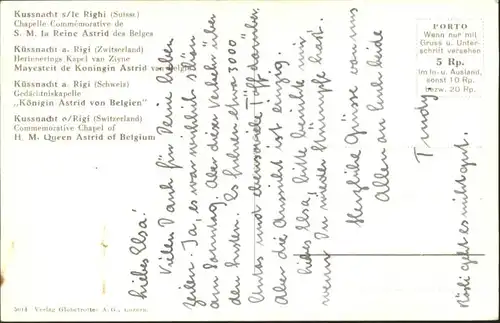 Kussnacht s/le Righi (Suisse)
Chapelle Commémorative de
S. M. la Reine Astrid des Belges
Küssnacht a. Rigi (Zwitserland)
Herinnerings Kapel van Zijne
Mayesteit de Koningin Astrid van België
Küssnacht a. Rigi (Schweiz)
Gedächtniskapelle
„Königin Astrid von Belgien"
Kussnacht o/Rigi (Switzerland)
Commemorative Chapel of
H. M. Queen Astrid of Belgium
PORTO
Wenn nur mit
Gruss u. Unter-
schrift versehen
5 Rp.
im In- u. Ausland,
sonst 10 Rp.
bezw. 20 Rp.
Liebes Elsa!
Vielen Dank für Deine lieben
Zeilen. Ja, es war wirklich schön
am Sonntag. Aber dieser Verkehr über
den Susten. Es fuhren etwa 3000
Autos und ebensoviele Töff darüber.
Aber die Aussicht ist einzig.
Liebes Elsa, bitte berichte mir
wenn Du wieder Strümpfe hast.
Herzliche Grüsse von uns
Allen an Euch beide
Trudy
geht es nicht gut.
5014 Verlag Globetrotter A. G., Luzern.